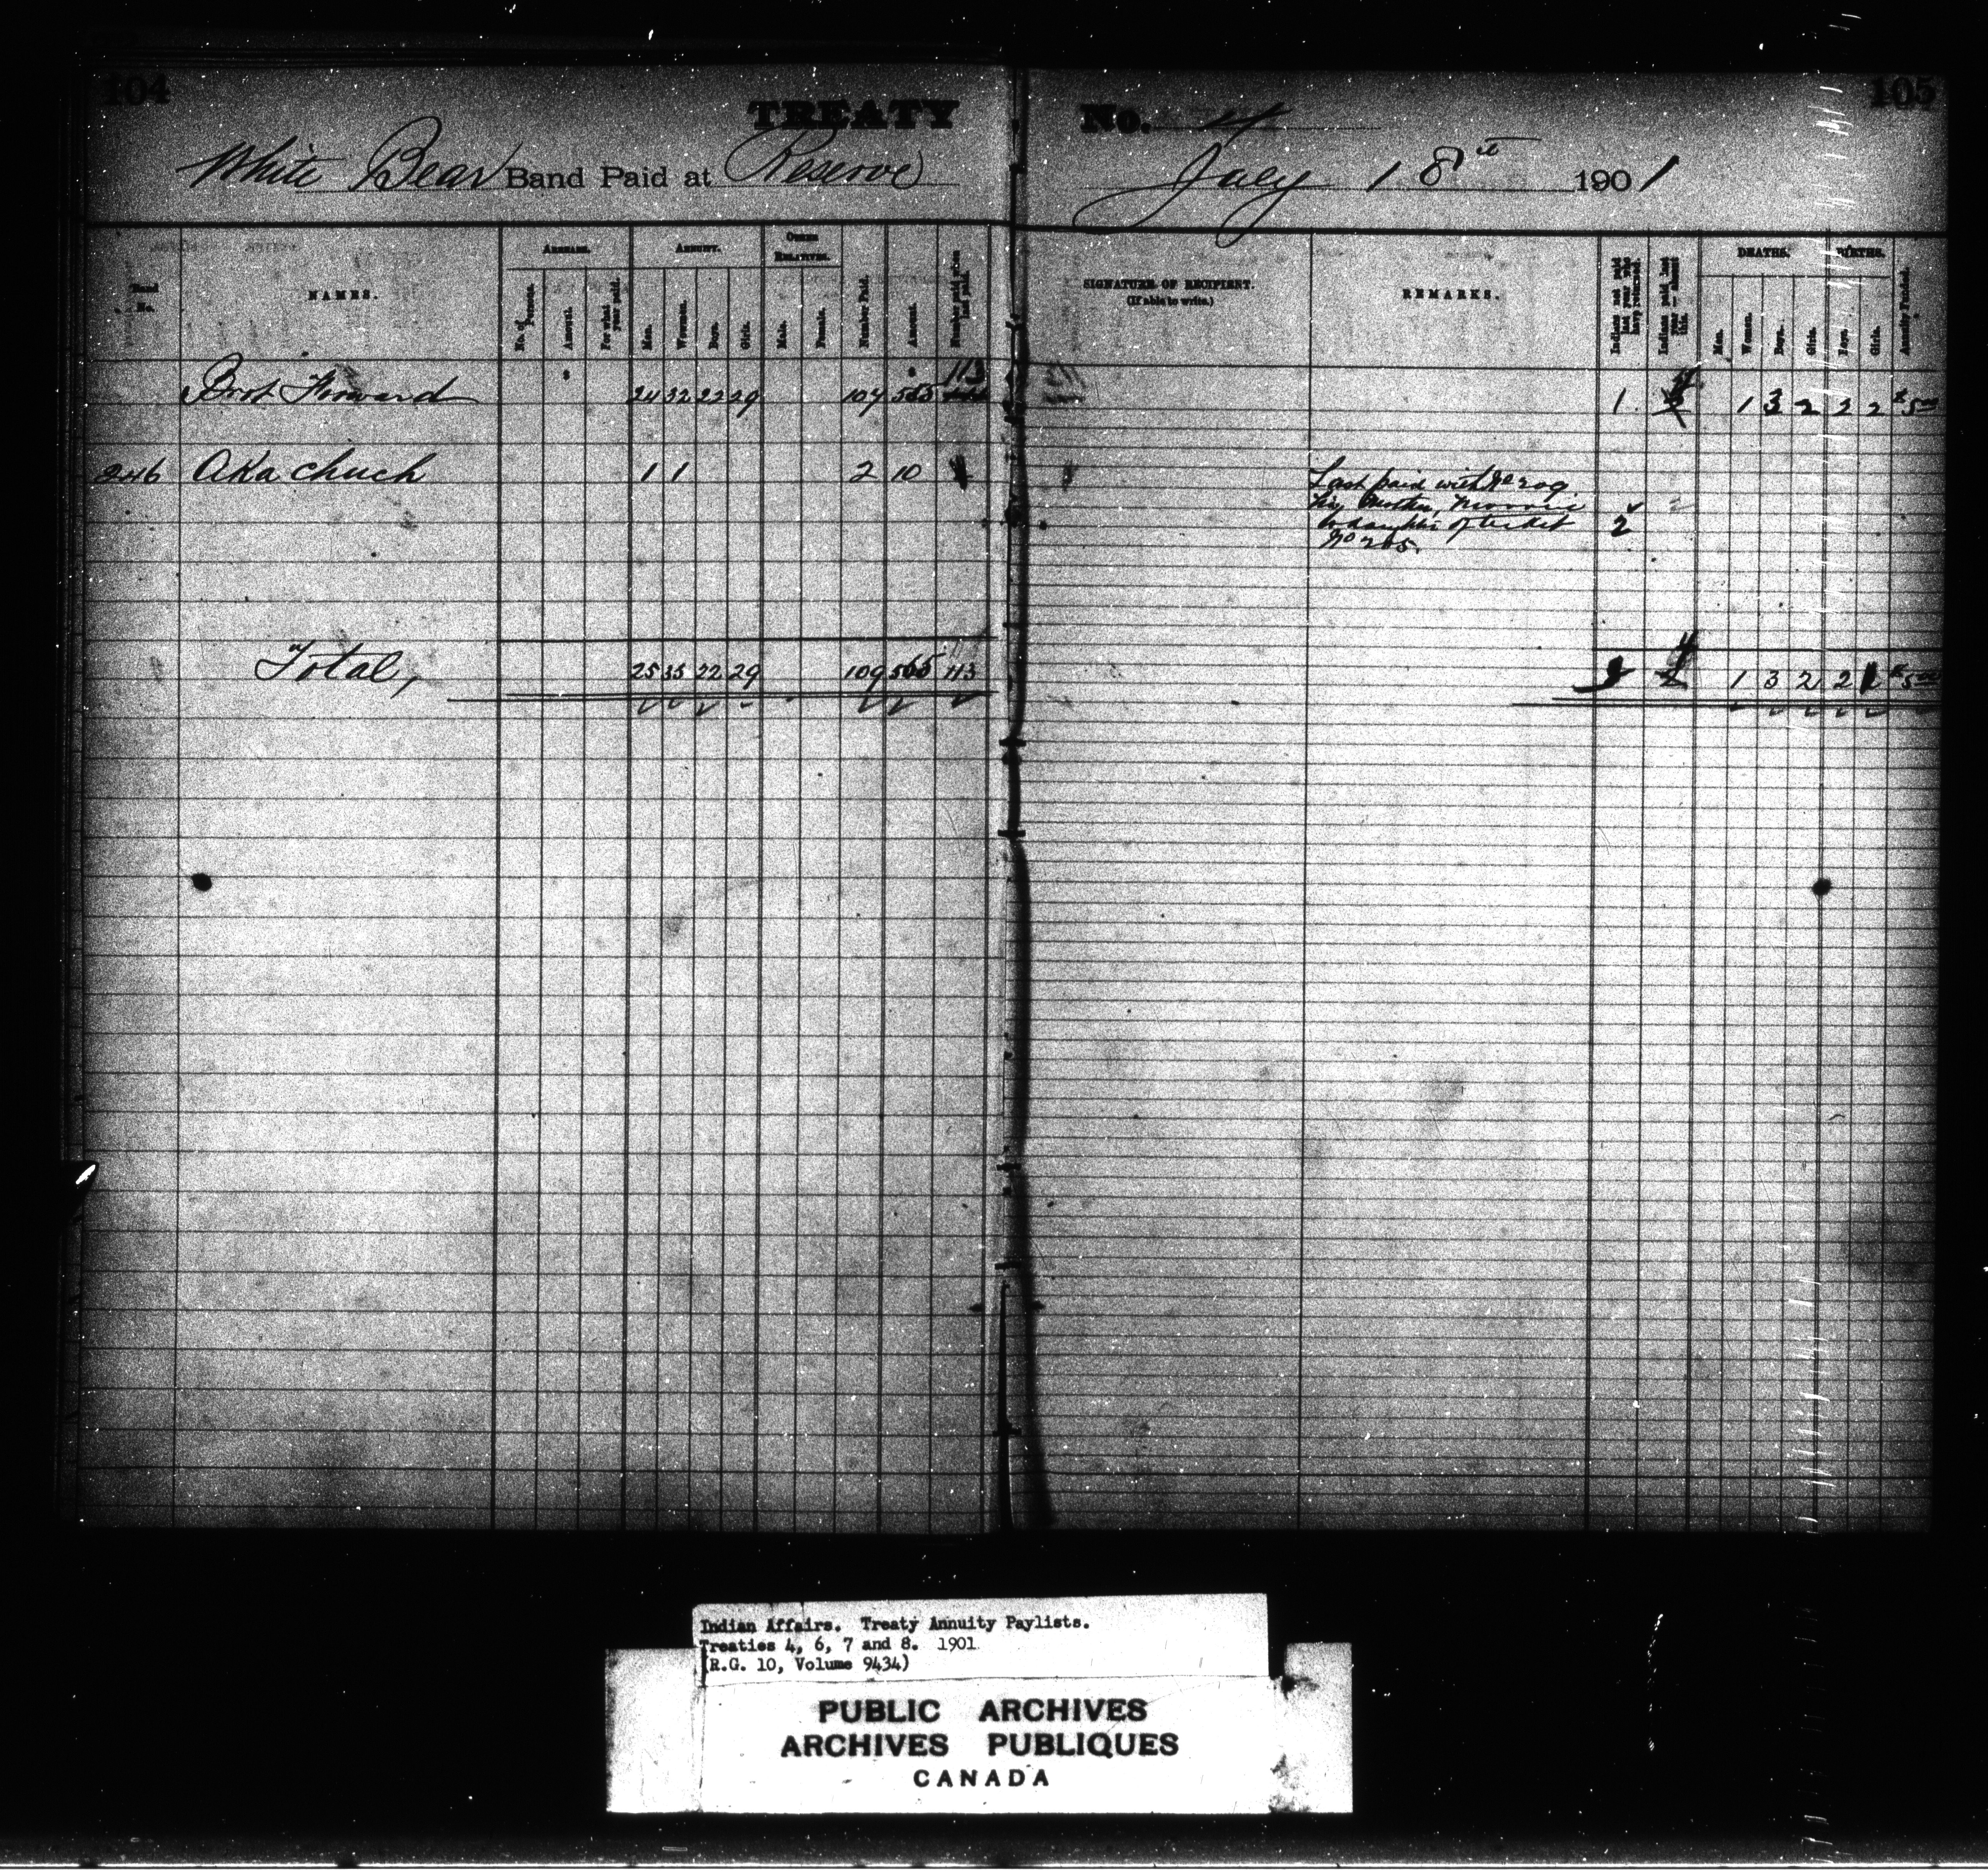 104
TREATY
No. 4
105
White Bear Band Paid at Reserve
July 18th 1901
Band No.
NAMES.
ARREARS.
No. of Persons.
Amount.
For what year paid.
ANNUITY.
Men.
Women.
Boys.
Girls.
OTHER RELATIVES.
Male.
Female.
Number Paid.
Amount.
Number paid when last paid.
SIGNATURE OF RECIPIENT.
(If able to write.)
REMARKS.
Indians not paid last year who have returned.
Indians paid last year — absent this.
DEATHS.
Men.
Women.
Boys.
Girls.
BIRTHS.
Boys.
Girls.
Annuity Funded.
Brot Forward 24 32 22 29 107 555 113
1 4 1 3 2 2 2 $5.00
246 Aka chuch 1 1 2 10
Last paid with No 209
his Mother,
daughter of ticket 2
No 205.
Total, 25 33 22 29 109 565 113
4 1 3 2 2 $5.00
Indian Affairs. Treaty Annuity Paylists.
Treaties 4, 6, 7 and 8. 1901
(R.G. 10, Volume 9434)
PUBLIC ARCHIVES
ARCHIVES PUBLIQUES
CANADA